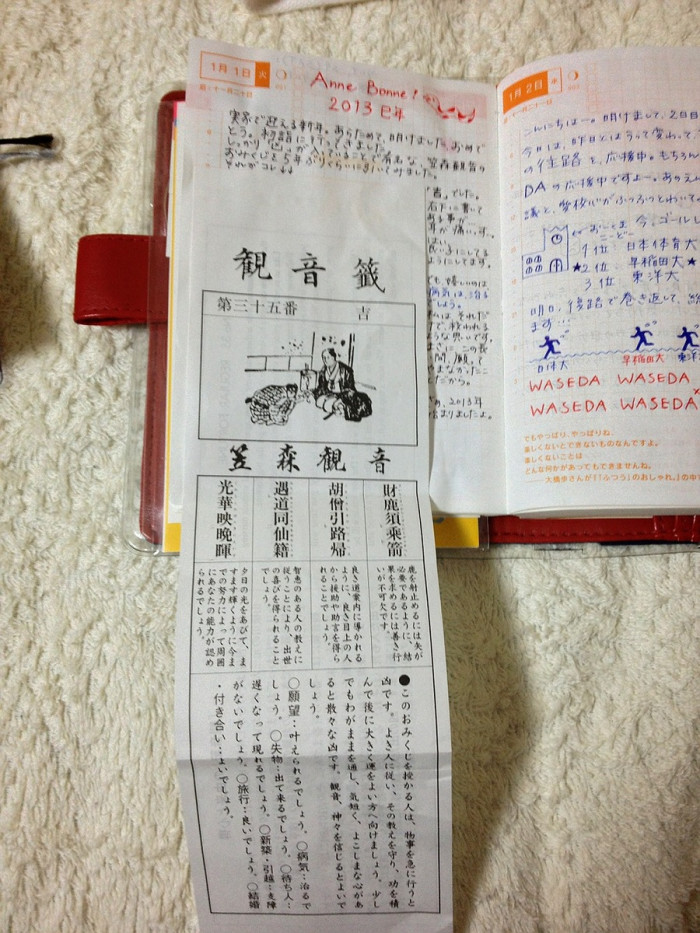 1月1日 火
旧:十一月二十日
Anne Bonne!
2013 巳年
実家で迎える新年。あらためて、明けましておめで
とう。初詣に行ってきました。
しっかり「凶」が入っていることで有名な、笠森観音の
おみくじを5年ぶりくらいに引いてみました。
それがコレ↓↓
「吉」でした。
右下に書いて
ある事が
耳が痛いっす。
はい。
良い子にしてる
ようにしてます。
でも嬉しいのは
病気は、治る
でしょう。
観音籤
第三十五番 吉
笠森観音
財鹿須乗箭
鹿を射止めるには矢が
必要であるように、結
果を求めるには善き行
いが不可欠です。
胡僧引路帰
良き道案内に導かれる
ように、良き目上の人
から援助や助言を得ら
れることでしょう
遇道同仙籍
智恵のある人の教えに
従うことにより、出世
の喜びを得られること
でしょう。
光華映晩暉
夕日の光をあびて、ま
すます輝くように今ま
での努力によって周囲
にあなたの能力が認め
られるでしょう。
●このおみくじを授かる人は、物事を急に行うと
凶です。よき人に従い、その教えを守り、功を積
んで後に大きく運をよい方へ向けましょう。少し
でもわがままを通し、気短く、よこしまな心があ
ると散々な凶です。観音、神々を信じるとよいで
しょう。
○願望:叶えられるでしょう。○病気:治るで
しょう。○失物:出て来るでしょう。○待ち人:
遅くなって現れるでしょう。○新築・引越:支障
がないでしょう。○旅行:良いでしょう。○結婚
・付き合い:よいでしょう。
1月2日 水
旧:十一月二十一日
こんにちはー。明けまして、2日目
今日は、昨日とはうって変わって、
の往路を、応援中。もちろん
DAの応援中ですよー。あのえん
議と、愛校心がふつふつとわいて
おーとま
こーどー
今、ゴールし
1位 日本体育大
★2位 早稲田大★
3位 東洋大
明日、復路で巻き返して、総
ます…!
日体大
早稲田大
東洋
WASEDA WASEDA
WASEDA WASEDA
でもやっぱり、やっぱりね、
楽しくないとできないものなんですよ。
楽しくないことは、
どんな何かがあってもできませんね。
——大橋歩さんが『「ふつう」のおしゃれ。』の中